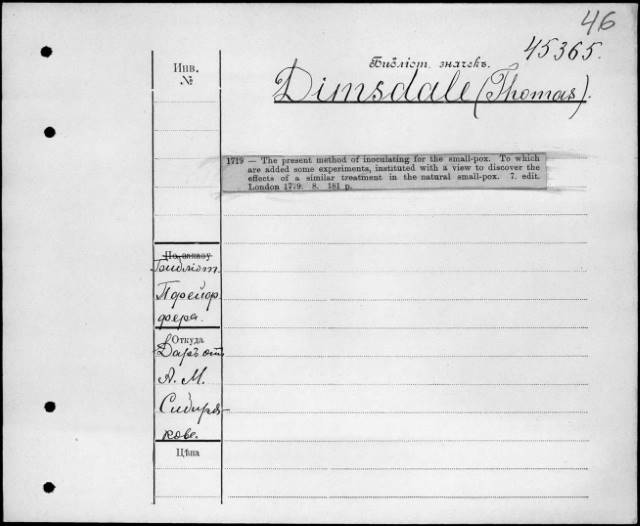 46
45365.
Инв.
№
Библіот. значекъ.
Dimsdale (Thomas).
1719 — The present method of inoculating for the small-pox. To which
are added some experiments, instituted with a view to discover the
effects of a similar treatment in the natural small-pox. 7. edit.
London 1779. 8. 181 p.
По заказу
Библіот.
Порейор
фера.
Откуда
Даръ отъ
А. М.
Сибиря-
кова.
Цѣна